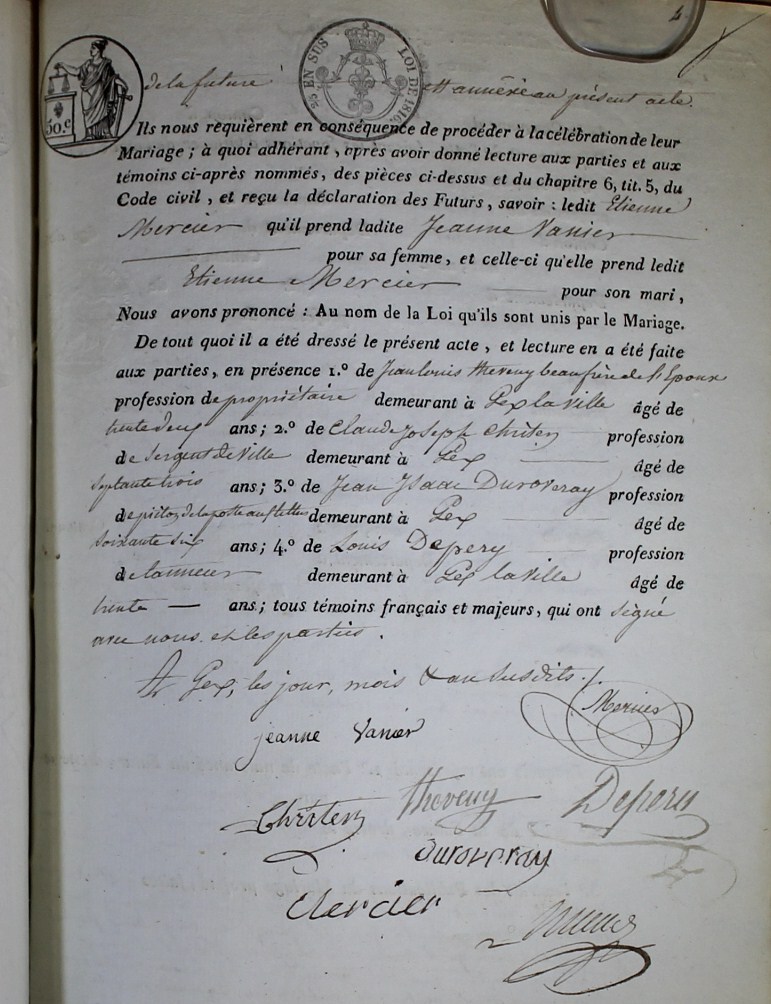 4
50.c
EN SUS
LOI DE 1816
de la future et annéxé au présent acte.
Ils nous requièrent en conséquence de procéder à la célébration de leur
Mariage ; à quoi adhérant , après avoir donné lecture aux parties et aux
témoins ci-après nommés, des pièces ci-dessus et du chapitre 6, tit. 5, du
Code civil , et reçu la déclaration des Futurs , savoir : ledit Etienne
Mercier qu'il prend ladite Jeanne Vanier
pour sa femme, et celle-ci qu'elle prend ledit
Etienne Mercier pour son mari ,
Nous avons prononcé : Au nom de la Loi qu'ils sont unis par le Mariage.
De tout quoi il a été dressé le présent acte , et lecture en a été faite
aux parties, en présence 1.º de Jean Louis Theveny beau frère de l'Epoux
profession de propriétaire demeurant à Gex la ville âgé de
trente deux ans; 2.º de Claude Joseph Christen profession
de Sergent de Ville demeurant à Gex âgé de
septante trois ans; 3.º de Jean Isaac Duroveray profession
de pieton de la poste aux lettres demeurant à Gex âgé de
soixante six ans; 4.º de Louis Depery profession
de tanneur demeurant à Gex la ville âgé de
trente ans; tous témoins français et majeurs, qui ont signé
avec nous et les parties.
A Gex, les jour, mois & an susdits ./.
Mercier
jeanne Vanier
Christen theveny Depery
Duroveray
Mercier